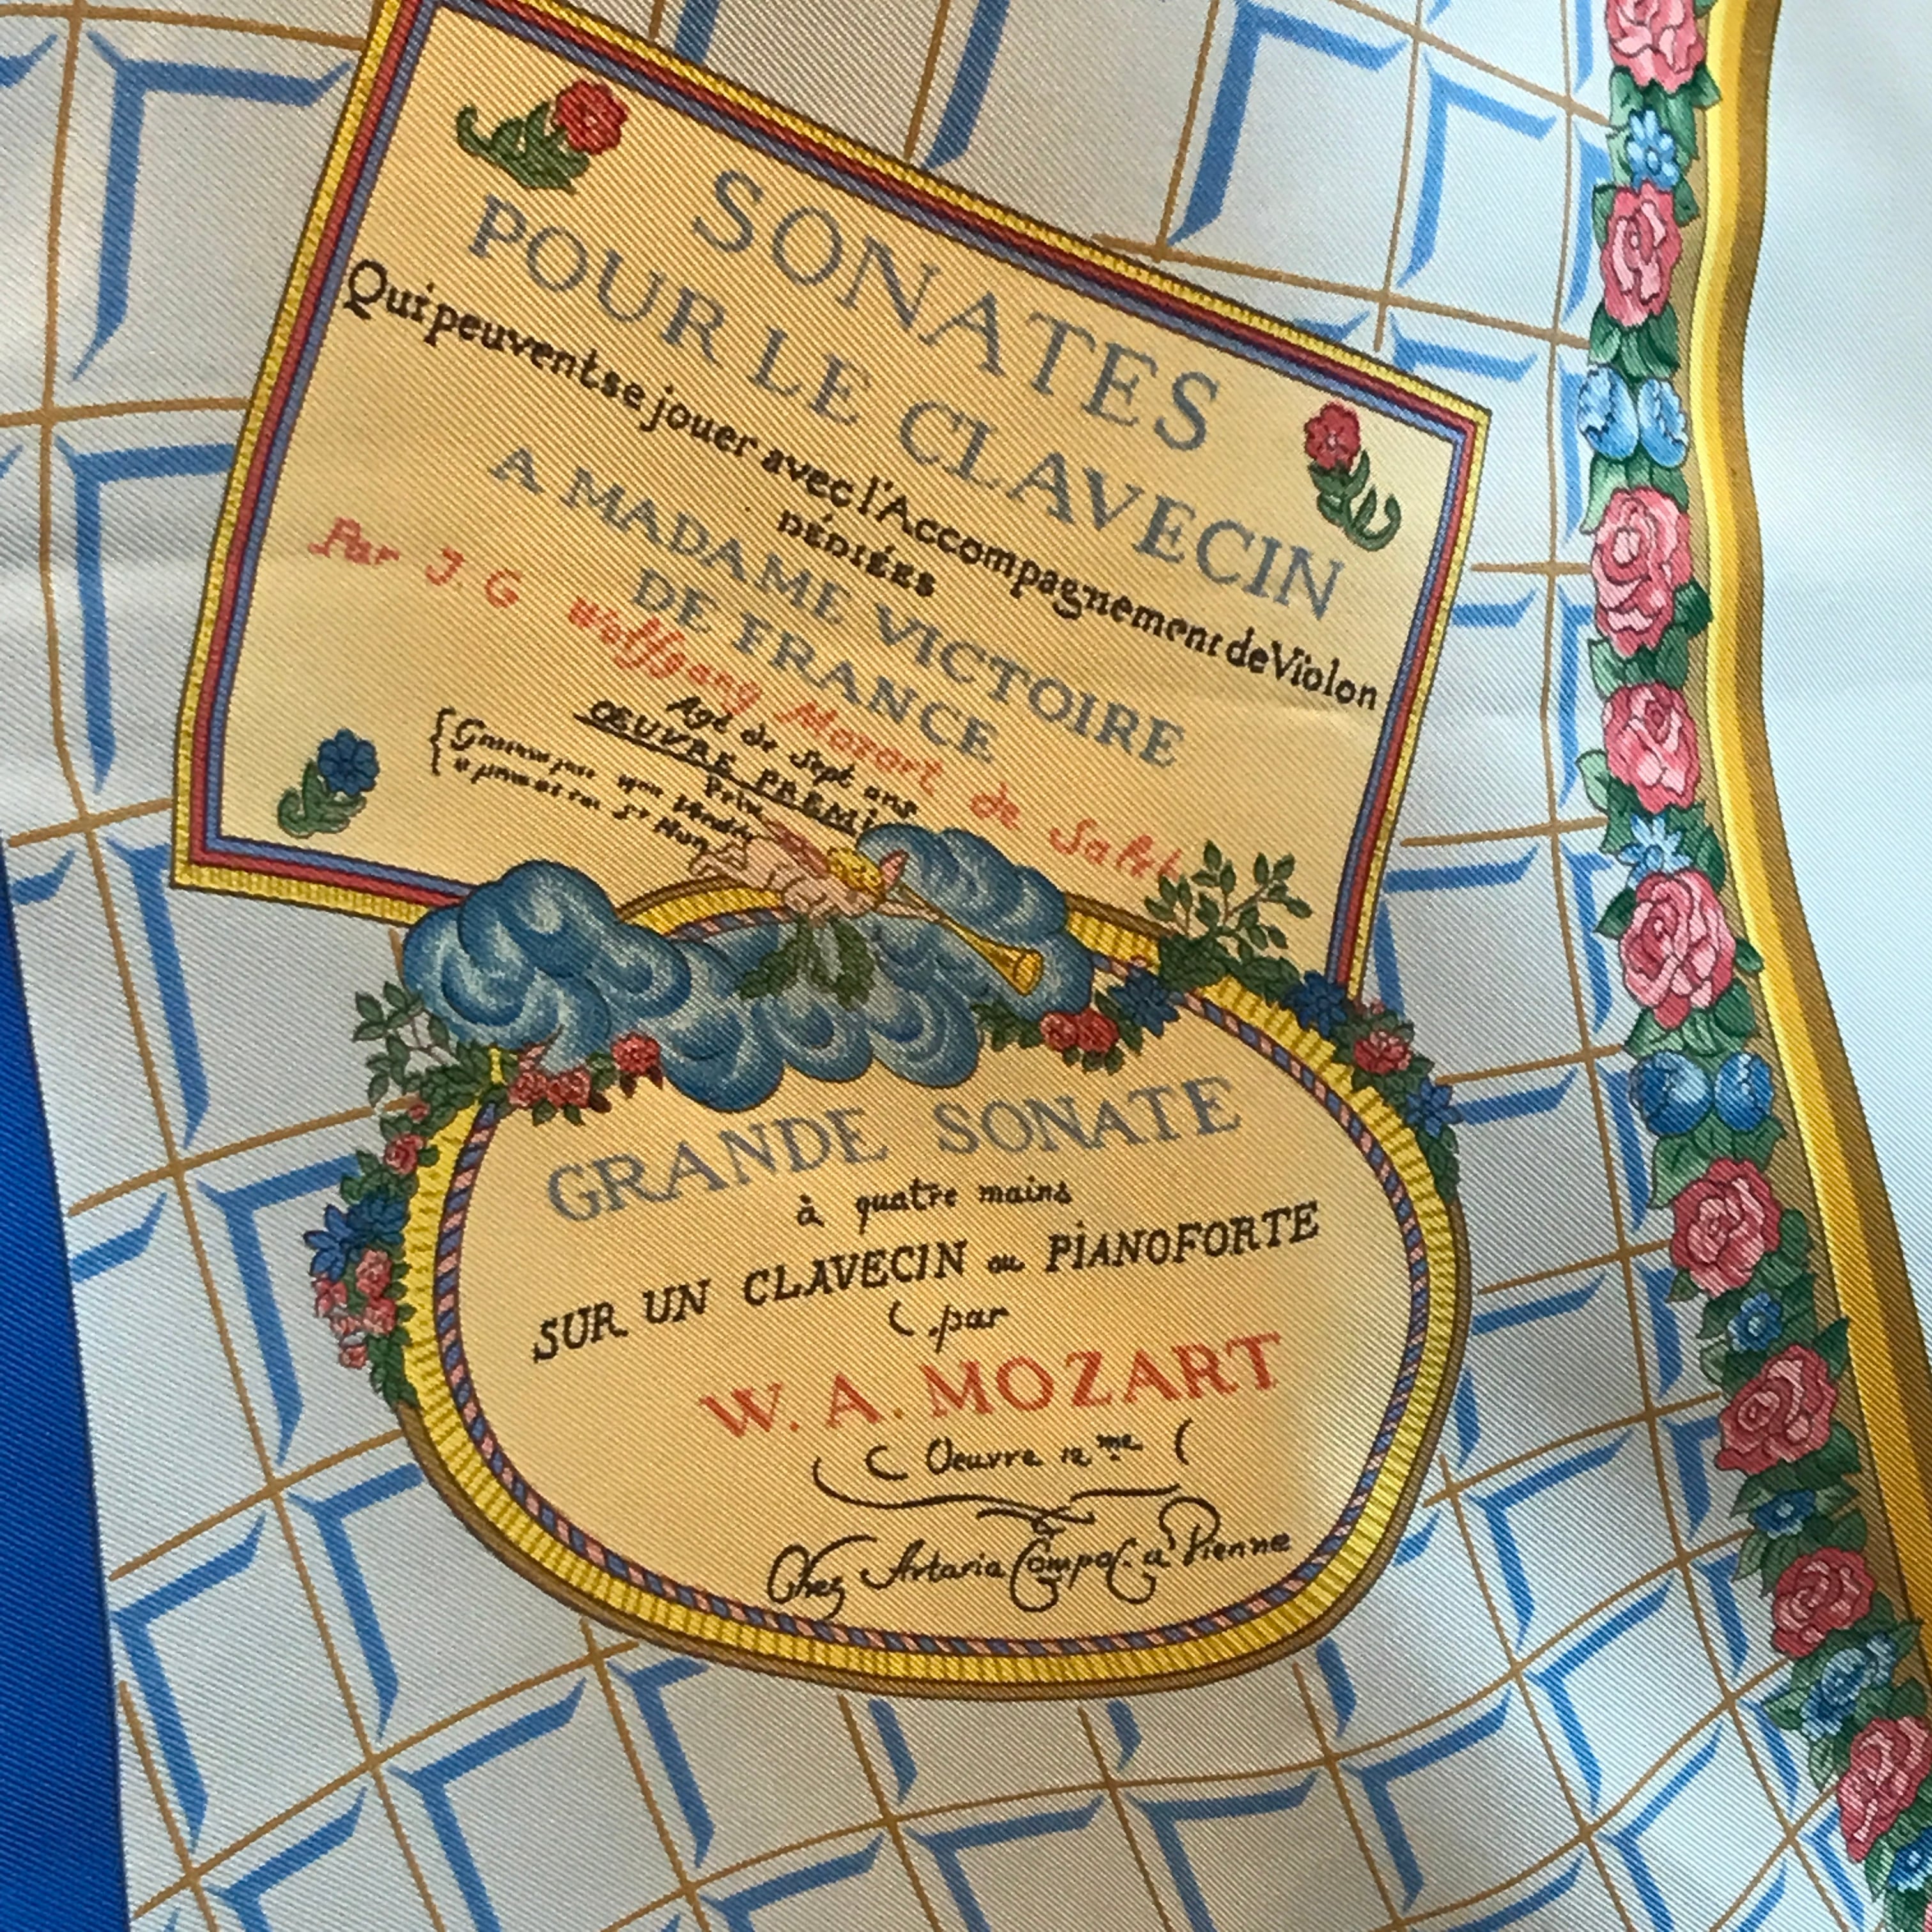 SONATES
POUR LE CLAVECIN
Qui peuvent se jouer avec l'Accompagnement de Violon
DÉDIÉES
A MADAME VICTOIRE
DE FRANCE
Par J. G Wolfgang Mozart de Salz
Agé de Sept ans
ŒUVRE PREMI
Prix
GRANDE SONATE
à quatre mains
SUR UN CLAVECIN ou PIANOFORTE
par
W. A. MOZART
Oeuvre 12me
Chez Artaria Compag. a Vienne